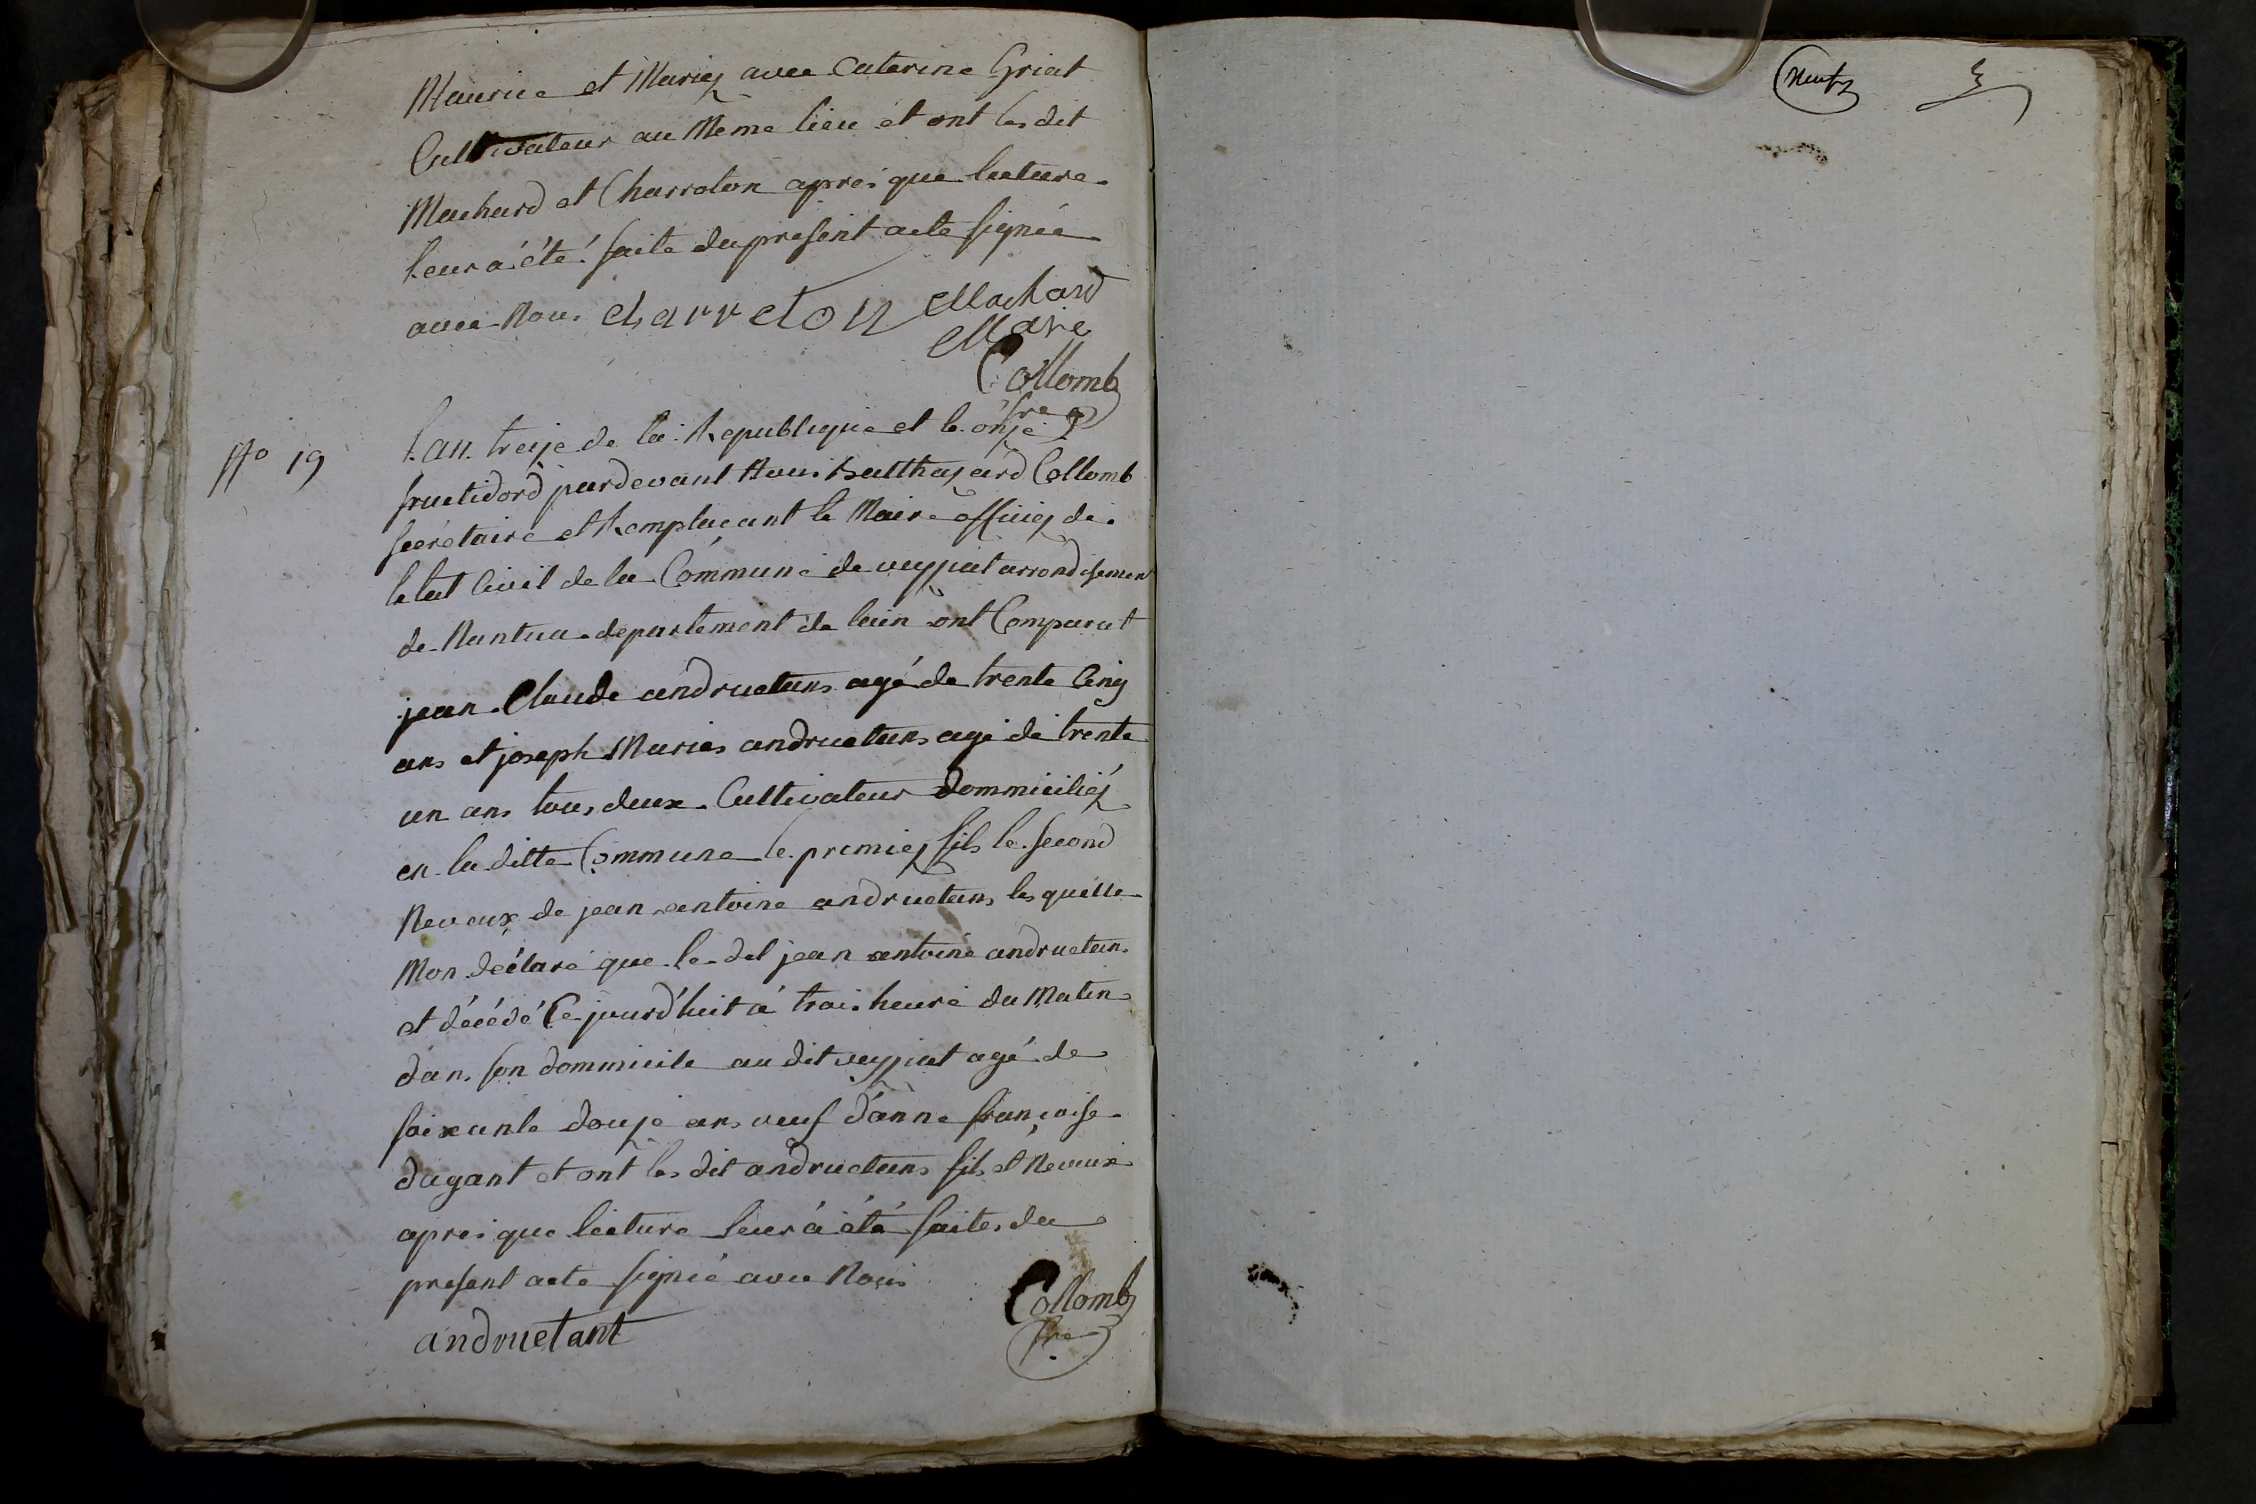 Maurice et Mariez avec Caterine Griat
Cultivateur au Même lieu et ont les dit
Machard et Charroton aprés que lecture
leur á été faite du present acte signée
avec Nous charreton Machard
Maire
Collomb
sre
N° 19
l'an treize de la Republique et le onze
fructidord pardevant Nous Balthazard Collomb
secrétaire et Remplacant le Maire officiez de
letat Civil de la Commune de veyziat arrondisemen
de Nantua departement de lain ont Comparut
jean Claude andruetans agé de trente Cinq
ans et joseph Maries andruetans agé de trente
un ans tous deux Cultivateur dommiciliéz
en la ditte Commune le premiez fils le second
Neveux de jean antoine andruetans les quelle
Mon déclaré que le dit jean antoine andruetan
et décédé Ce jourd'huit á trois heure du Matin
dans son dommicile au dit veyziat agé de
soixante douze ans veuf d'anne françoise
dagant et ont les dit andruetans fils et Neveux
aprés que lecture leur á été faites du
present acte signée avec Nous
Collomb
sre
andruetant
neuf